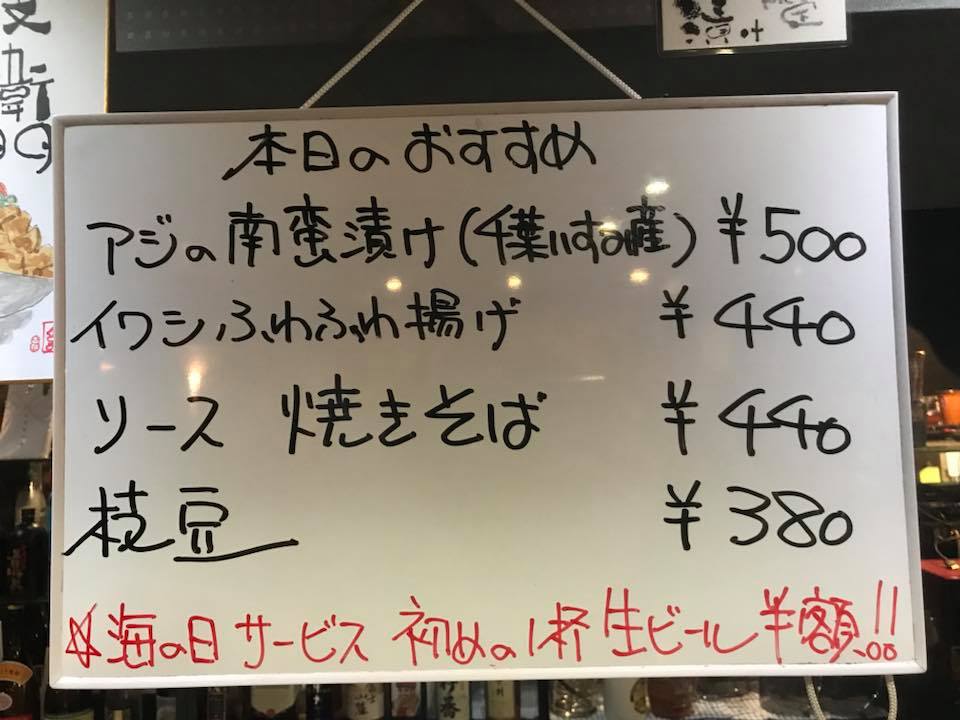 本日のおすすめ
アジの南蛮漬け(千葉いすみ産) ¥500
イワシふわふわ揚げ ¥440
ソース 焼きそば ¥440
枝豆 ¥380
☆海の日サービス 初めの1杯生ビール半額!!